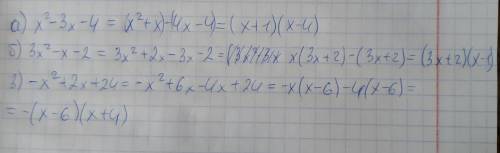 а) x²-3x-4 = (x²+x)-(4x-4)=(x+1)(x-4)
б) 3x²-x-2 = 3x²+2x-3x-2= x(3x+2)-(3x+2)=(3x+2)(x-1)
3) -x²+2x+24=-x²+6x-4x+24=-x(x-6)-4(x-6)=
=-(x-6)(x+4)